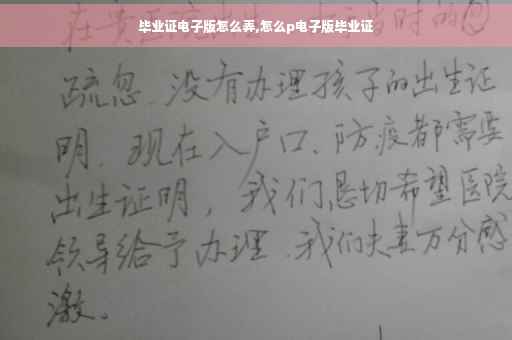 毕业证电子版怎么弄,怎么p电子版毕业证
疏忽、没有办理孩子的出生证
明、现在入户口、防疫都需要
出生证明，我们恳切希望医院
领导给予办理、我们夫妻万分感
激。